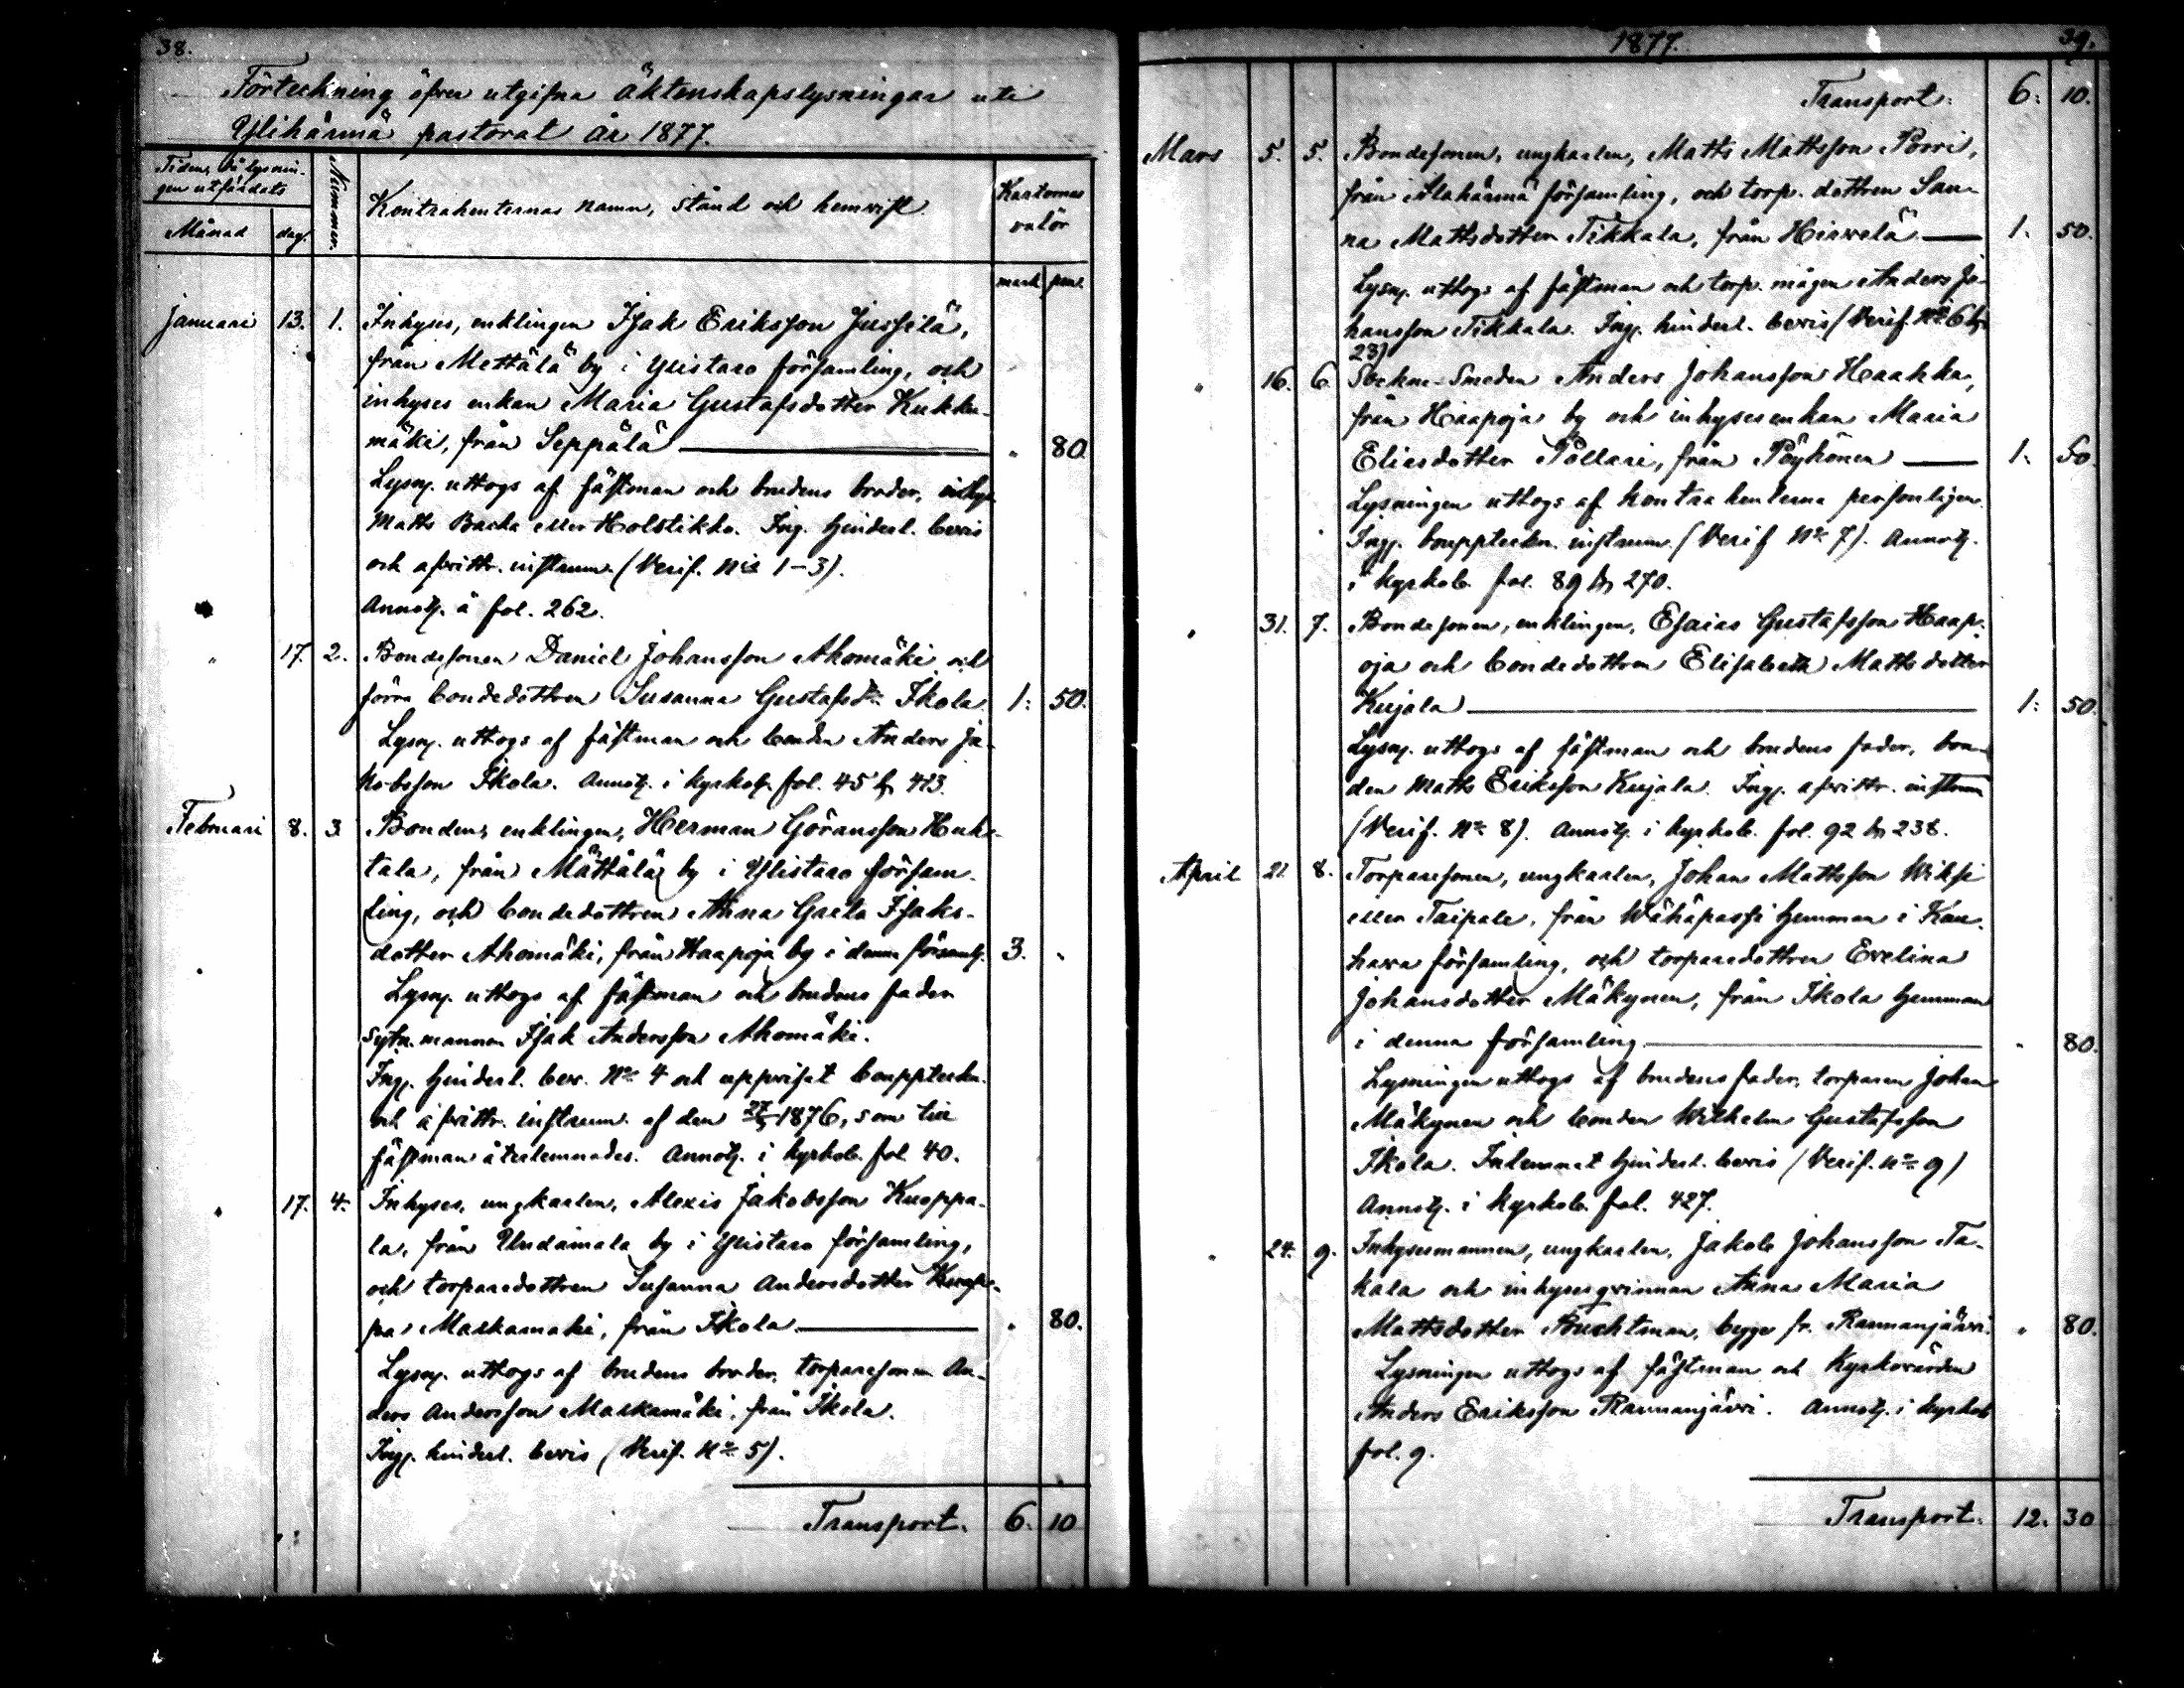 38.
Förteckning öfver utgifna äktenskapslysningar uti
Ylihärmä pastorat år 1877.
Tiden, då lysnin-
gen utfärdats
Månad
dag.
Nummer.
Kontrahenternas namn, stånd och hemvist.
Kartornas
valör
mark
pen.
Januari 13. 1. Inhyses, enklingen Isak Eriksson Jussilä,
från Mettälä by i Ylistaro församling, och
inhyses enkan Maria Gustafsdotter Kukku-
mäki, från Seppälä " 80.
Lysn. uttogs af fästman och brudens broder, inhys.
Matts Backa eller Holstikko. Ing. hinderl. bevis
och afvittr. instrum. (Verif. N:is 1-3).
Annotg. å fol. 262.
" 17. 2. Bondesonen Daniel Johansson Ahomäki och
förra bondedottren Susanna Gustafsdr. Ikola. 1: 50.
Lysn. uttogs af fästman och bonden Anders Ja-
kobsson Ikola. Annotg. i kyrkob. fol. 45 & 413.
Februari 8. 3. Bonden, enklingen, Herman Göransson Huh-
tala, från Mättälä by i Ylistaro försam-
ling, och bondedottren Anna Greta Isaks-
dotter Ahomäki, från Haapoja by i denna församlg. 3. "
Lysn. uttogs af fästman och brudens fader
sytn. mannen Isak Andersson Ahomäki.
Ing. hinderl. bev. No 4 och uppvisat bouppteckn.
och afvittr. instrum. af den 27/5 1876, som till
fästman återlemnades. Annotg. i kyrkob. fol. 40.
" 17. 4. Inhyses, ungkarlen, Alexis Jakobsson Kuoppa-
la, från Untamala by i Ylistaro församling,
och torparedottren Susanna Andersdotter
Markamäki, från Ikola " 80.
Lysn. uttogs af brudens broder, torparesonen An-
ders Andersson Markamäki, från Ikola.
Ing. hinderl. bevis (Verif. No 5).
Transport. 6. 10
1877. 39.
Transport. 6: 10.
Mars 5. 5. Bondesonen, ungkarlen, Matts Mattsson Porri,
från Alahärmä församling, och torp. dottren San-
na Mattsdotter Tikkala, från Hirvelä 1. 50.
Lysn. uttogs af fästman och torp. mågen Anders Jo-
hansson Tikkala. Ing. hinderl. bevis (Verif. No 6 &
23)
" 16. 6. Sockne-Smeden Anders Johansson Haahka,
från Haapoja by och inhysesenkan Maria
Eliasdotter Pollari, från Pöyhönen 1. 50.
Lysningen uttogs af kontrahenterna personligen.
Ing. bouppteckn. instrum. (Verif No 7). Annotg.
i kyrkob. fol. 89 & 270.
" 31. 7. Bondesonen, enklingen, Esaias Gustafsson Haap-
oja och bondedottren Elisabeth Mattsdotter
Kujala 1: 50.
Lysn. uttogs af fästman och brudens fader, bon-
den Matts Eriksson Kujala. Ing. afvittr. instrum
(Verif. No 8). Annotg. i kyrkob. fol. 92 & 238.
April 21. 8. Torparesonen, ungkarlen, Johan Mattsson Wiksi
eller Taipale, från Wähäpassi hemman i Kau-
hava församling, och torparedottren Evelina
Johansdotter Mäkynen, från Ikola hemman
i denna församling " 80.
Lysningen uttogs af brudens fader, torparen Johan
Mäkynen och bonden Wilhelm Gustafsson
Ikola. Inlemnat hinderl. bevis (Verif. No 9)
Annotg. i kyrkob. fol. 427.
" 24. 9. Inhysesmannen, ungkarlen, Jakob Johansson Ta-
kala och inhysesqvinnan Anna Maria
Mattsdotter Bruchtman, begge fr. Rannanjärvi. " 80.
Lysningen uttogs af fästman och Kyrkovärden
Anders Eriksson Rannanjärvi. Annotg. i kyrkob
fol. 9.
Transport. 12. 30